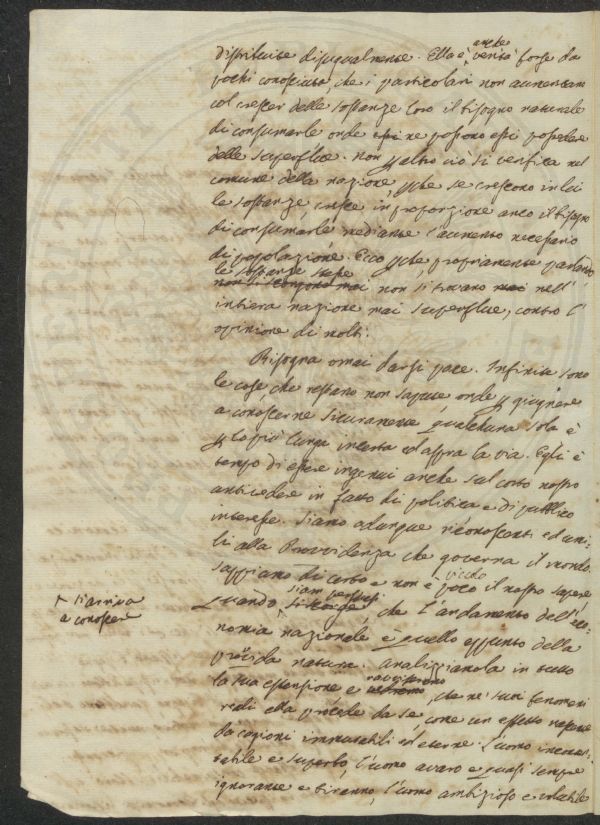 distribuite disugualmente. Ella è anche verità forse da
pochi conosciuta, che i particolari non aumentano
col crescer delle sostanze loro il bisogno naturale
di consumarle onde essi ne possono essi possedere
delle superflue. Non peraltro ciò si verifica nel
comune della nazione, perche se crescono in lei
le sostanze, cresce in proporzione anco il bisogno
di consumarle mediante l'aumento necessario
di popolazione. Ecco perche propriamente parlando
le sostanze stesse
non si trovano mai nell'
intiera nazione mai superflue, contro l'
opinione di molti.
Bisogna omai darsi pace. Infinite sono
le cose che restano non sapute onde per giugnere
a conoscerne sicuramente qualcheduna sola è
per lo più lunga incerta ed aspra la via. Egli è
tempo di essere ingenui anche sul corto nostro
antivedere in fatto di politica e di pubblico
interesse. Siamo adunque riconoscenti ed umi-
li alla Provvidenza che governa il mondo.
Sappiamo di certo e non è piccolo poco il nostro sapere
+ si arriva
a conoscere
quando siam persuasi, che l'andamento dell'eco-
nomia nazionale è quello appunto della
provvida natura. Analizziamola in tutta
la sua estensione e ravviseremo vedremo, che ne' suoi fenomeni
reali ella procede da se, come un effetto
da cagioni immutabili ed eterne. L'uomo incon-
tabile e superbo, l'uomo avaro e quasi sempre
ignorante e tiranno, l'uomo ambizioso e volubile